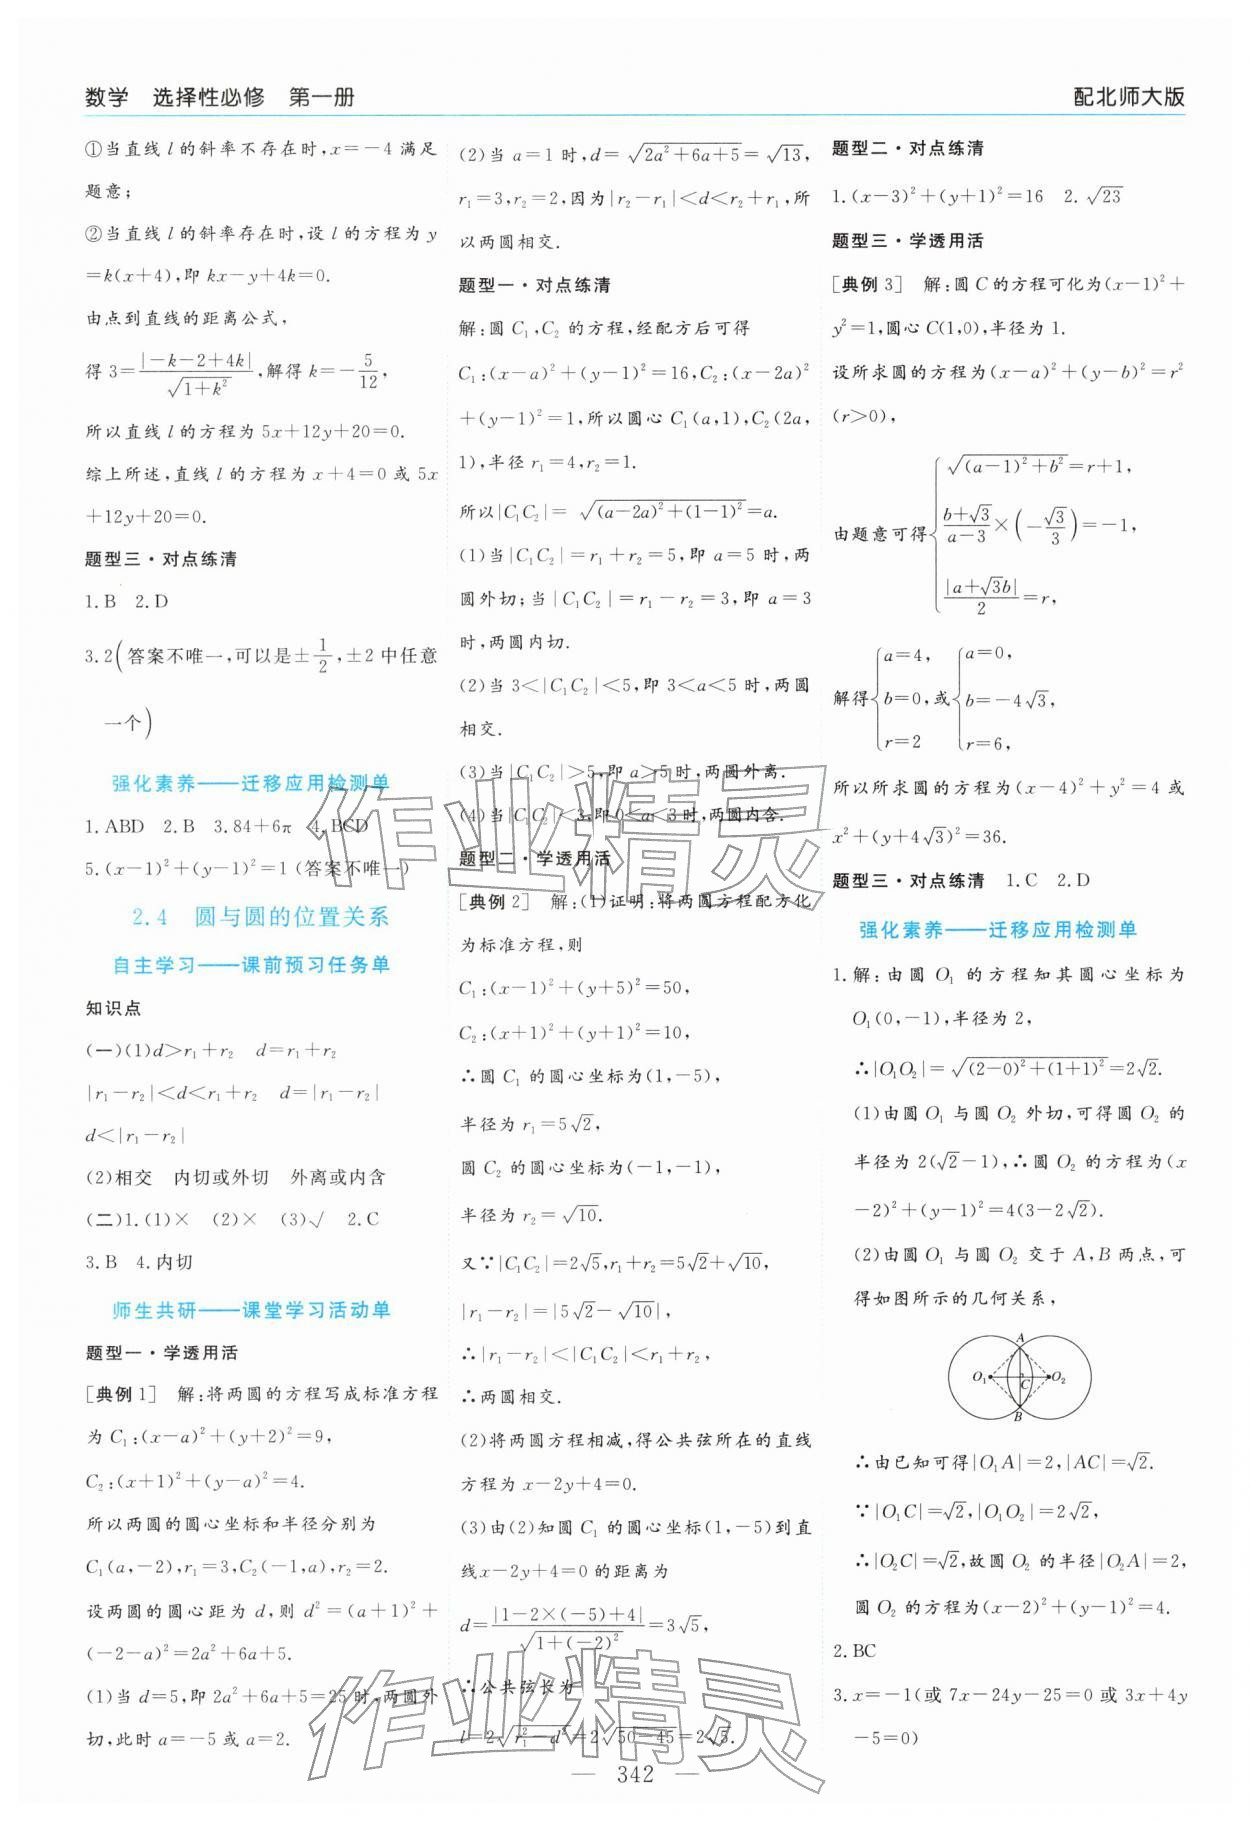 数学 选择性必修 第一册
配北师大版
①当直线 l 的斜率不存在时,x=-4 满足
题意;
②当直线 l 的斜率存在时,设 l 的方程为 y
=k(x+4),即 kx-y+4k=0.
由点到直线的距离公式,
得 3=|-k-2+4k|/√(1+k²),解得 k=-5/12,
所以直线 l 的方程为 5x+12y+20=0.
综上所述,直线 l 的方程为 x+4=0 或 5x
+12y+20=0.
题型三·对点练清
1.B 2.D
3.2(答案不唯一,可以是±1/2,±2 中任意
一个)
强化素养——迁移应用检测单
1.ABD 2.B 3.84+6π 4.BCD
5.(x-1)²+(y-1)²=1(答案不唯一)
2.4 圆与圆的位置关系
自主学习——课前预习任务单
知识点
(一)(1)d>r₁+r₂ d=r₁+r₂
|r₁-r₂|<d<r₁+r₂ d=|r₁-r₂|
d<|r₁-r₂|
(2)相交 内切或外切 外离或内含
(二)1.(1)× (2)× (3)√ 2.C
3.B 4.内切
师生共研——课堂学习活动单
题型一·学透用活
[典例 1] 解:将两圆的方程写成标准方程
为 C₁:(x-a)²+(y+2)²=9,
C₂:(x+1)²+(y-a)²=4.
所以两圆的圆心坐标和半径分别为
C₁(a,-2),r₁=3,C₂(-1,a),r₂=2.
设两圆的圆心距为 d,则 d²=(a+1)²+
(-2-a)²=2a²+6a+5.
(1)当 d=5,即 2a²+6a+5=25 时,两圆外
切,此时 a=-5 或 a=2.
(2)当 a=1 时,d=√(2a²+6a+5)=√13,
r₁=3,r₂=2,因为|r₂-r₁|<d<r₂+r₁,所
以两圆相交.
题型一·对点练清
解:圆 C₁,C₂ 的方程,经配方后可得
C₁:(x-a)²+(y-1)²=16,C₂:(x-2a)²
+(y-1)²=1,所以圆心 C₁(a,1),C₂(2a,
1),半径 r₁=4,r₂=1.
所以|C₁C₂|=√((a-2a)²+(1-1)²)=a.
(1)当|C₁C₂|=r₁+r₂=5,即 a=5 时,两
圆外切;当|C₁C₂|=r₁-r₂=3,即 a=3
时,两圆内切.
(2)当 3<|C₁C₂|<5,即 3<a<5 时,两圆
相交.
(3)当|C₁C₂|>5,即 a>5 时,两圆外离.
(4)当|C₁C₂|<3,即 0<a<3 时,两圆内含.
题型二·学透用活
[典例 2] 解:(1)证明:将两圆方程配方化
为标准方程,则
C₁:(x-1)²+(y+5)²=50,
C₂:(x+1)²+(y+1)²=10,
∴圆 C₁ 的圆心坐标为(1,-5),
半径为 r₁=5√2,
圆 C₂ 的圆心坐标为(-1,-1),
半径为 r₂=√10.
又∵|C₁C₂|=2√5,r₁+r₂=5√2+√10,
|r₁-r₂|=|5√2-√10|,
∴|r₁-r₂|<|C₁C₂|<r₁+r₂,
∴两圆相交.
(2)将两圆方程相减,得公共弦所在的直线
方程为 x-2y+4=0.
(3)由(2)知圆 C₁ 的圆心坐标(1,-5)到直
线x-2y+4=0 的距离为
d=|1-2×(-5)+4|/√(1+(-2)²)=3√5,
∴公共弦长为
l=2√(r₁²-d²)=2√(50-45)=2√5.
题型二·对点练清
1.(x-3)²+(y+1)²=16 2.√23
题型三·学透用活
[典例 3] 解:圆 C 的方程可化为(x-1)²+
y²=1,圆心 C(1,0),半径为 1.
设所求圆的方程为(x-a)²+(y-b)²=r²
(r>0),
由题意可得{√((a-1)²+b²)=r+1,
(b+√3)/(a-3)×(-√3/3)=-1,
|a+√3b|/2=r,
解得{a=4, b=0, r=2 或{a=0, b=-4√3, r=6,
所以所求圆的方程为(x-4)²+y²=4 或
x²+(y+4√3)²=36.
题型三·对点练清 1.C 2.D
强化素养——迁移应用检测单
1.解:由圆 O₁ 的方程知其圆心坐标为
O₁(0,-1),半径为 2,
∴|O₁O₂|=√((2-0)²+(1+1)²)=2√2.
(1)由圆 O₁ 与圆 O₂ 外切,可得圆 O₂ 的
半径为 2(√2-1),∴圆 O₂ 的方程为(x
-2)²+(y-1)²=4(3-2√2).
(2)由圆 O₁ 与圆 O₂ 交于 A,B 两点,可
得如图所示的几何关系,
A
O₁ C O₂
B
∴由已知可得|O₁A|=2,|AC|=√2.
∵|O₁C|=√2,|O₁O₂|=2√2,
∴|O₂C|=√2,故圆 O₂ 的半径|O₂A|=2,
圆 O₂ 的方程为(x-2)²+(y-1)²=4.
2.BC
3.x=-1(或 7x-24y-25=0 或 3x+4y
-5=0)
— 342 —
作业精灵
作业精灵